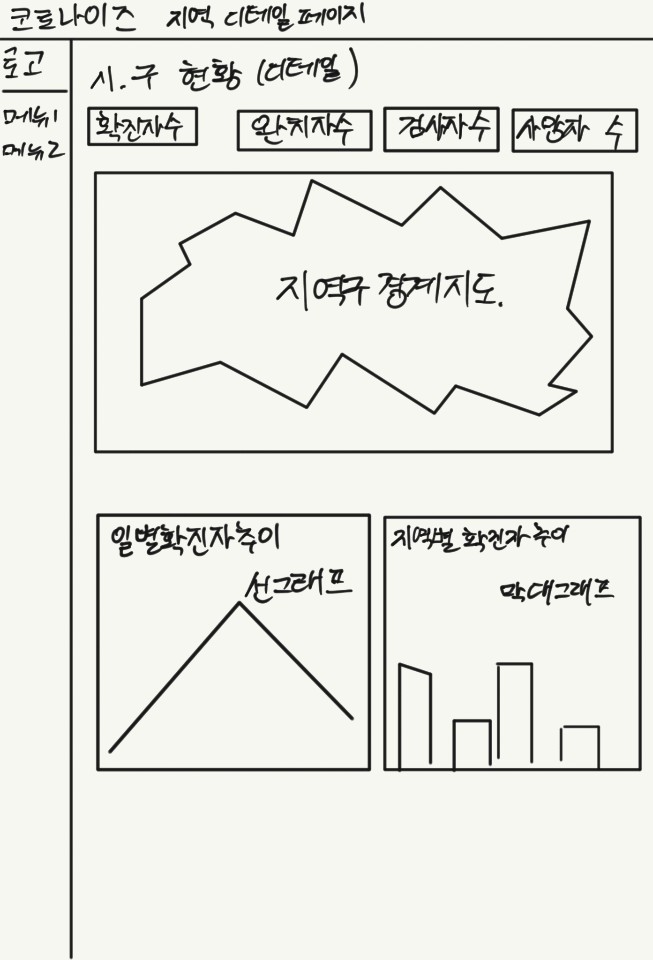 코로나이즈 지역 디테일 페이지
로고
메뉴1
메뉴2
시.구 현황 (디테일)
확진자수
완치자수
검사자수
사망자 수
지역구 경계지도.
일별확진자추이
선그래프
지역별 확진자 추이
막대그래프